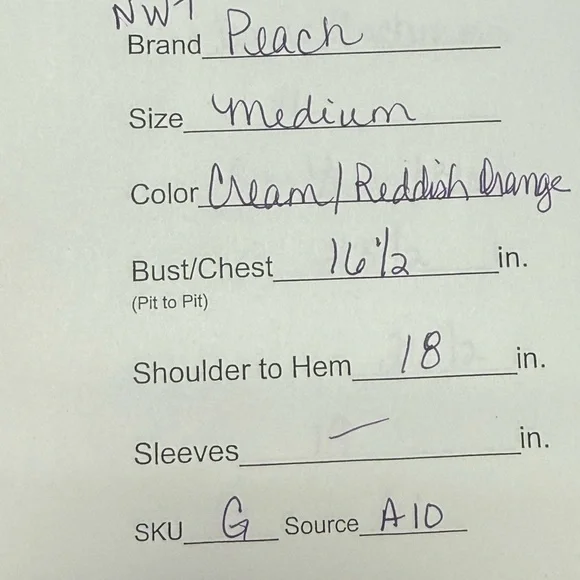 NWT
Brand Peach
Size Medium
Color Cream/Reddish Orange
Bust/Chest 16 1/2 in.
(Pit to Pit)
Shoulder to Hem 18 in.
Sleeves — in.
SKU G Source A10